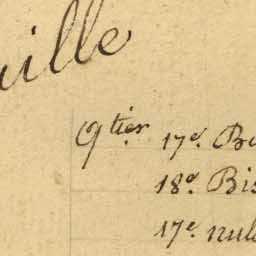 uille
9tier 17e. Be
18e Bis
17e. nul